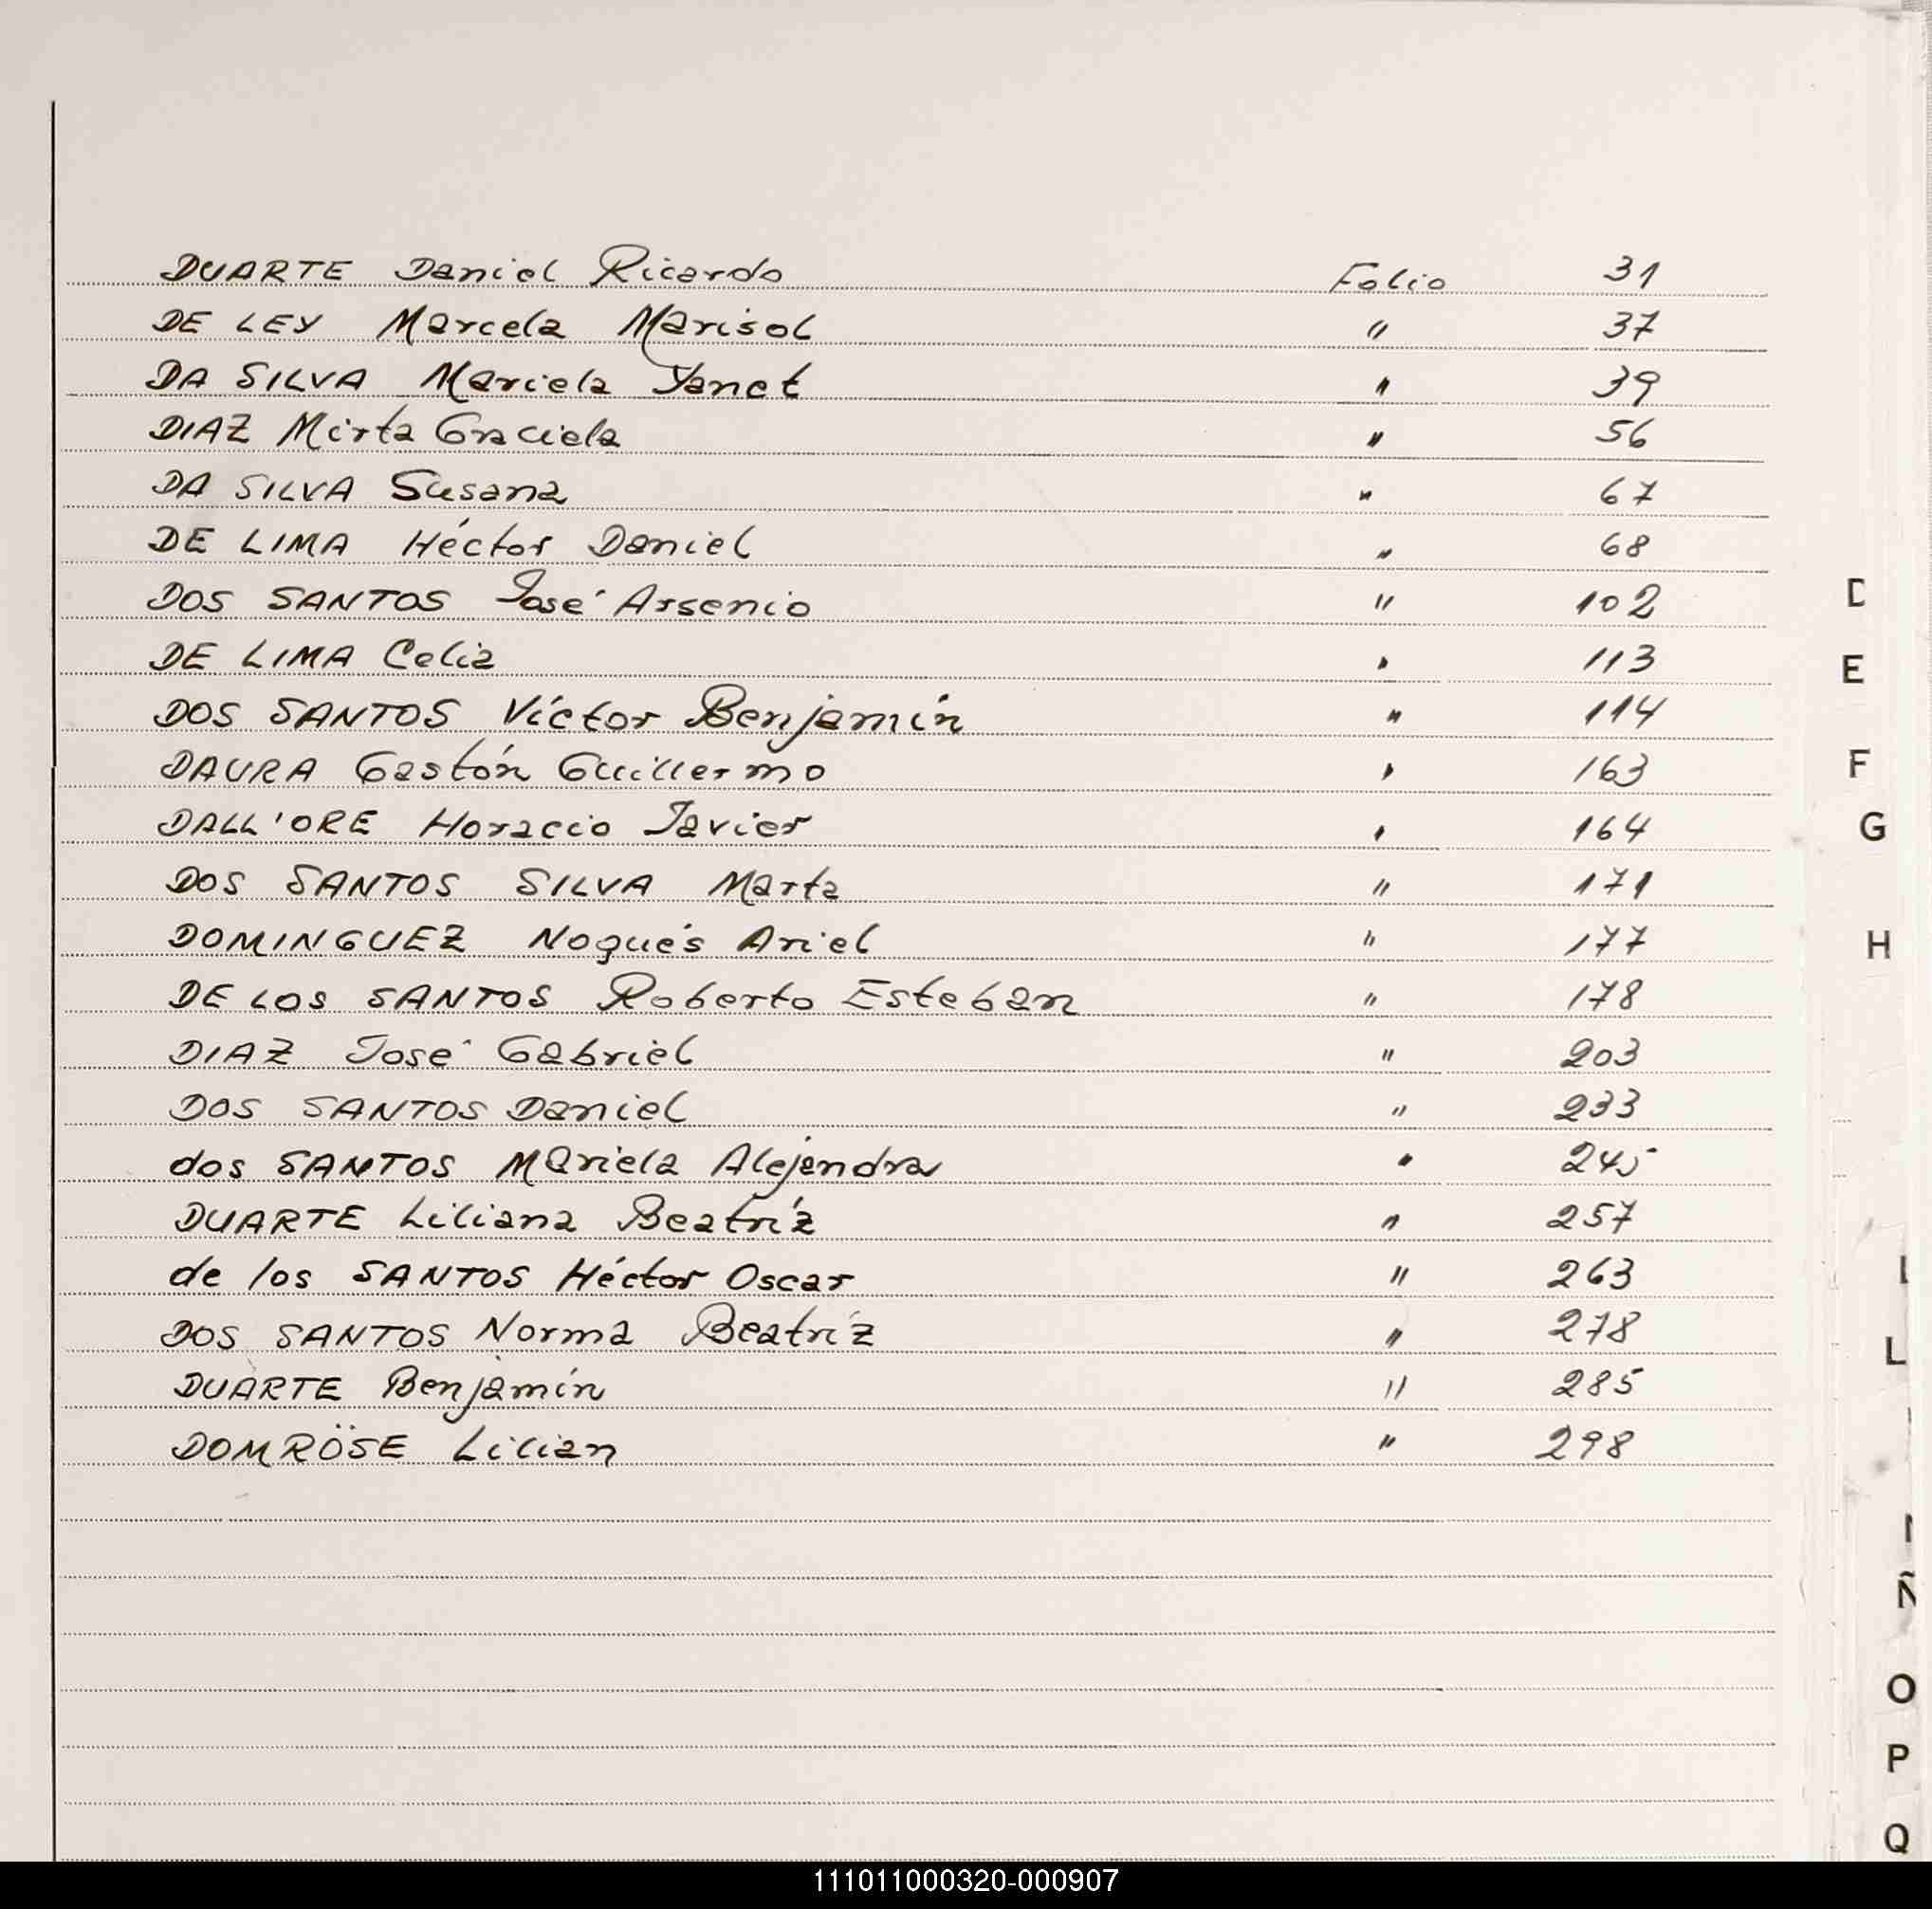 DUARTE Daniel Ricardo Folio 31
DE LEY Marcela Marisol " 37
DA SILVA Mariela Yanet " 39
DIAZ Mirta Graciela " 56
DA SILVA Susana " 67
DE LIMA Héctor Daniel " 68
DOS SANTOS José Arsenio " 102
DE LIMA Celia " 113
DOS SANTOS Víctor Benjamín " 114
DAURA Gastón Guillermo " 163
DALL'ORE Horacio Javier " 164
DOS SANTOS SILVA Marta " 171
DOMINGUEZ Nogués Ariel " 177
DE LOS SANTOS Roberto Esteban " 178
DIAZ José Gabriel " 203
DOS SANTOS Daniel " 233
dos SANTOS Mariela Alejandra " 245
DUARTE Liliana Beatríz " 257
de los SANTOS Héctor Oscar " 263
DOS SANTOS Norma Beatríz " 278
DUARTE Benjamín " 285
DOMRÖSE Lilian " 298
D
E
F
G
H
L
Ñ
O
P
Q
111011000320-000907